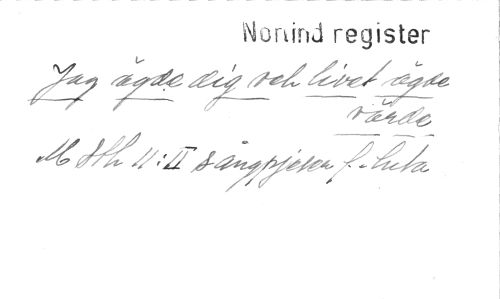 Nonind register
Jag ägde dig och livet ägde
värde
M Sth 11:II sångpjeser f. luta